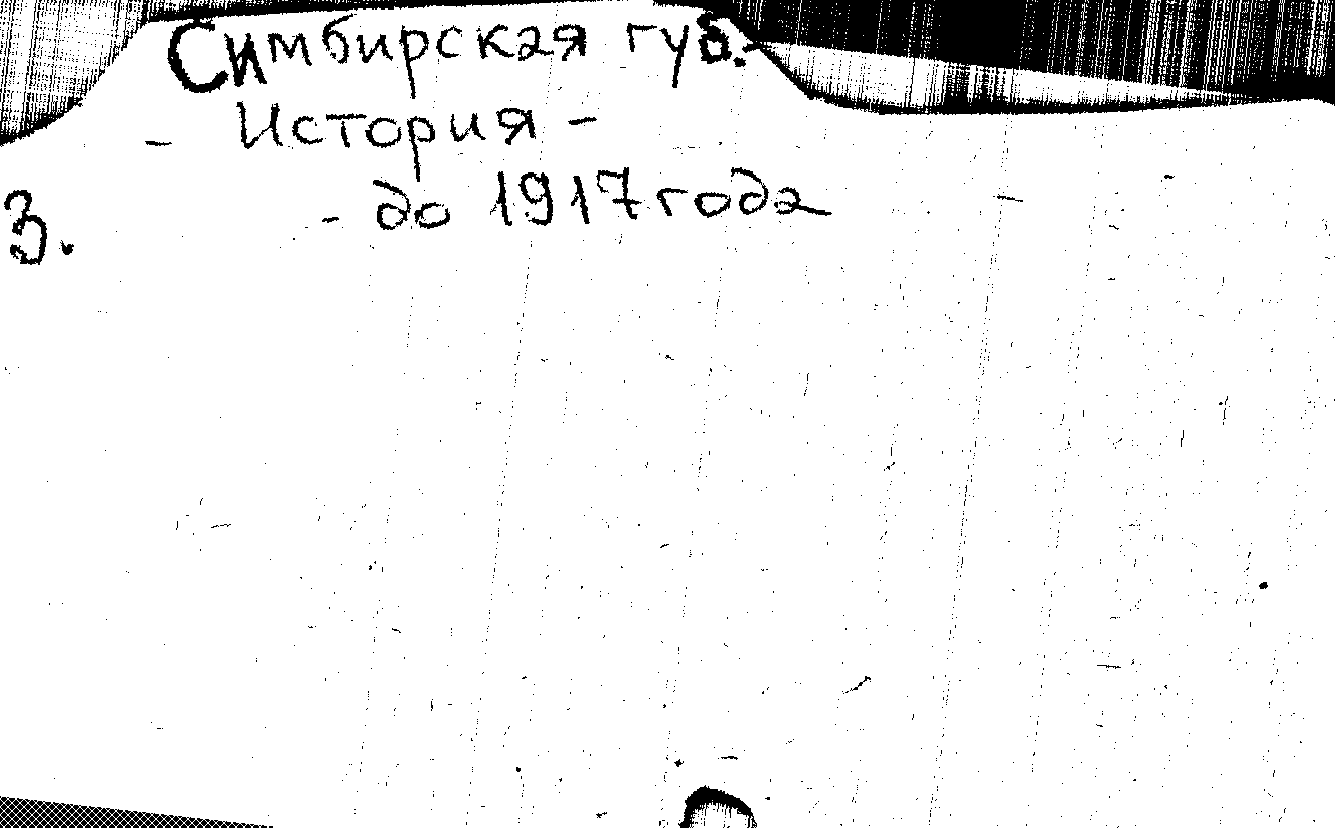 Симбирская губ.-
- История -
- до 1917 года
3.